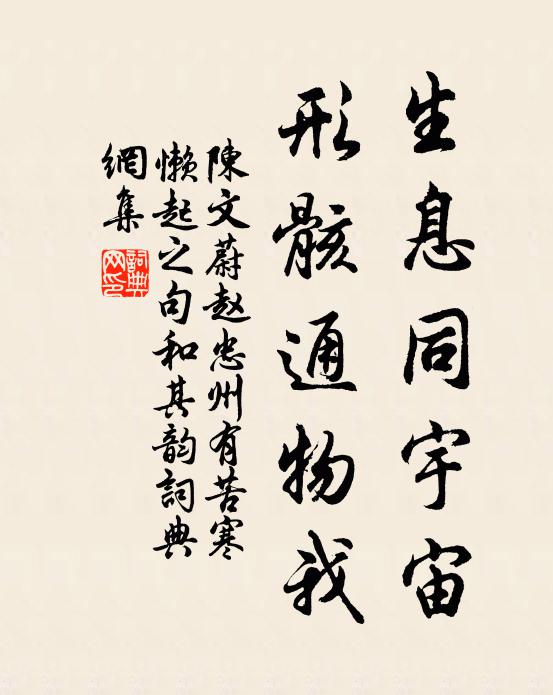 生息同宇宙
形骸通物我
陳文蔚赵忠州有苦寒
懒起之句和其韵詞典
網集
詞典
网印